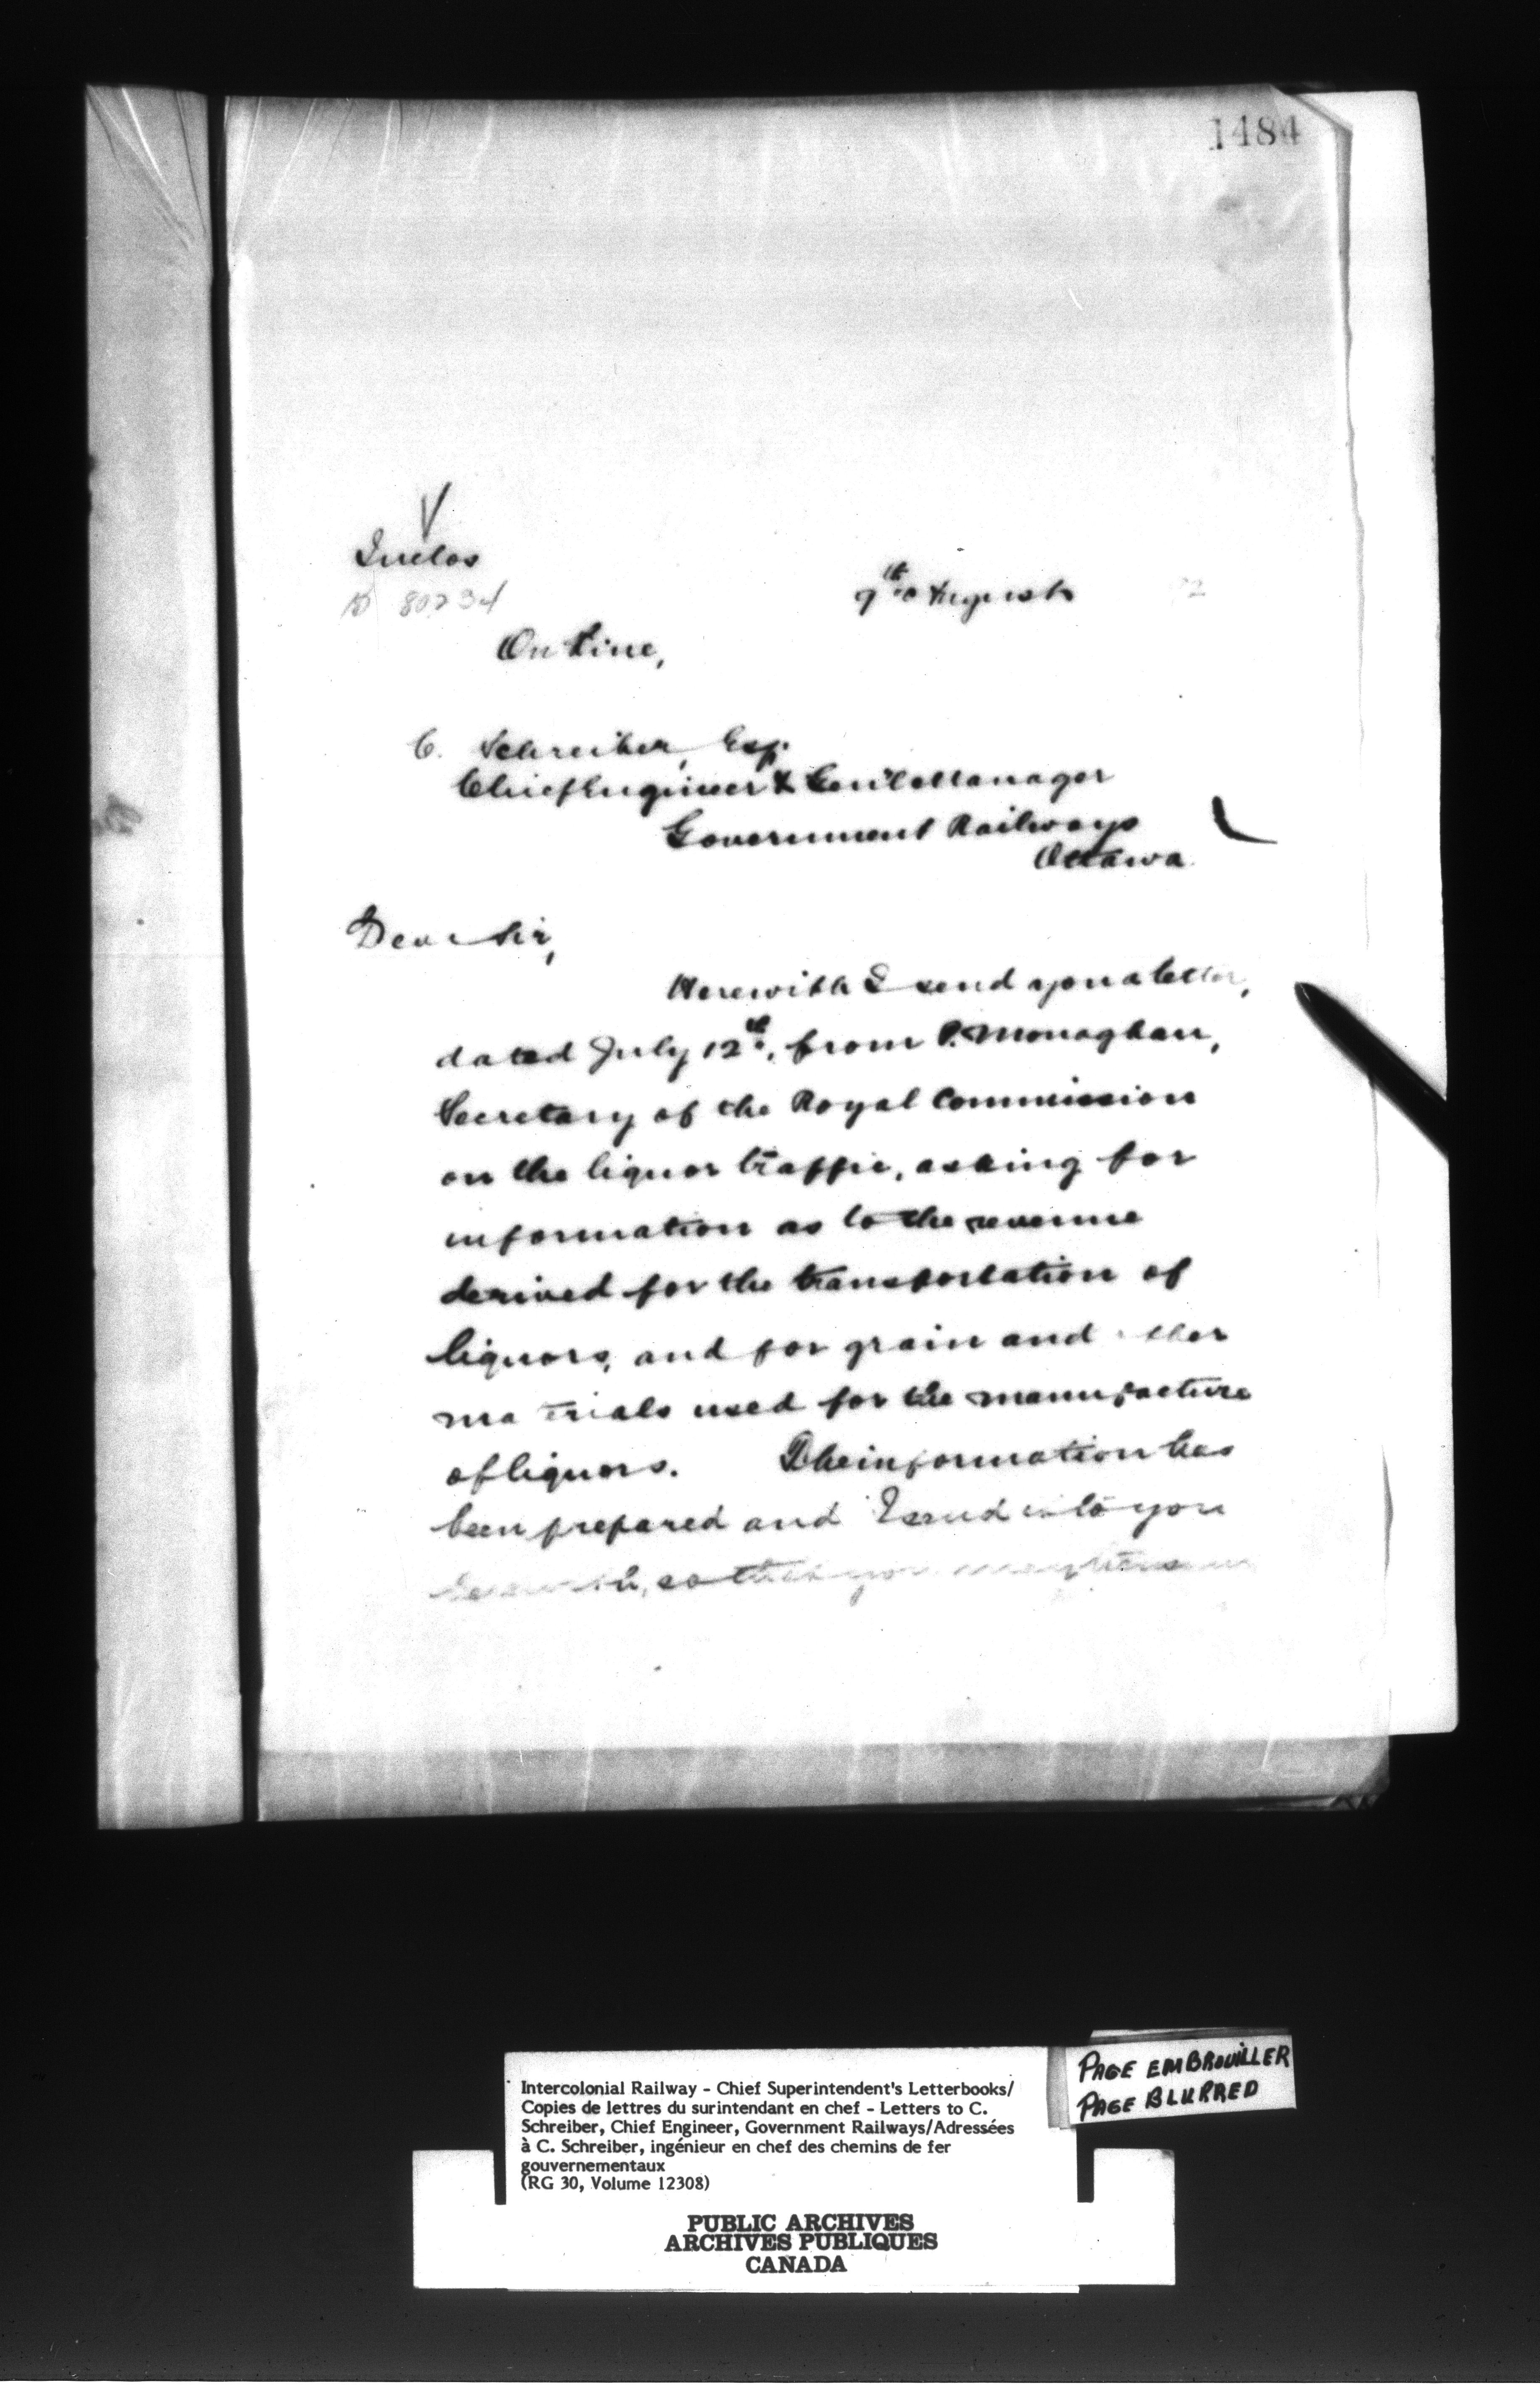 1484
Inclos
80234
9th August 92
On Line,
C. Schreiber, Esq.
Chief Engineer & Genl Manager
Government Railways
Ottawa
Dear Sir,
Herewith I send you a letter,
dated July 12th, from P. Monaghan,
Secretary of the Royal Commission
on the liquor traffic, asking for
information as to the revenue
derived for the transportation of
liquors, and for grain and other
materials used for the manufacture
of liquors. The information has
been prepared and I send it to you
herewith, so that you may
Intercolonial Railway - Chief Superintendent's Letterbooks/
Copies de lettres du surintendant en chef - Letters to C.
Schreiber, Chief Engineer, Government Railways/Adressées
à C. Schreiber, ingénieur en chef des chemins de fer
gouvernementaux
(RG 30, Volume 12308)
PUBLIC ARCHIVES
ARCHIVES PUBLIQUES
CANADA
PAGE EMBROUILLER
PAGE BLURRED